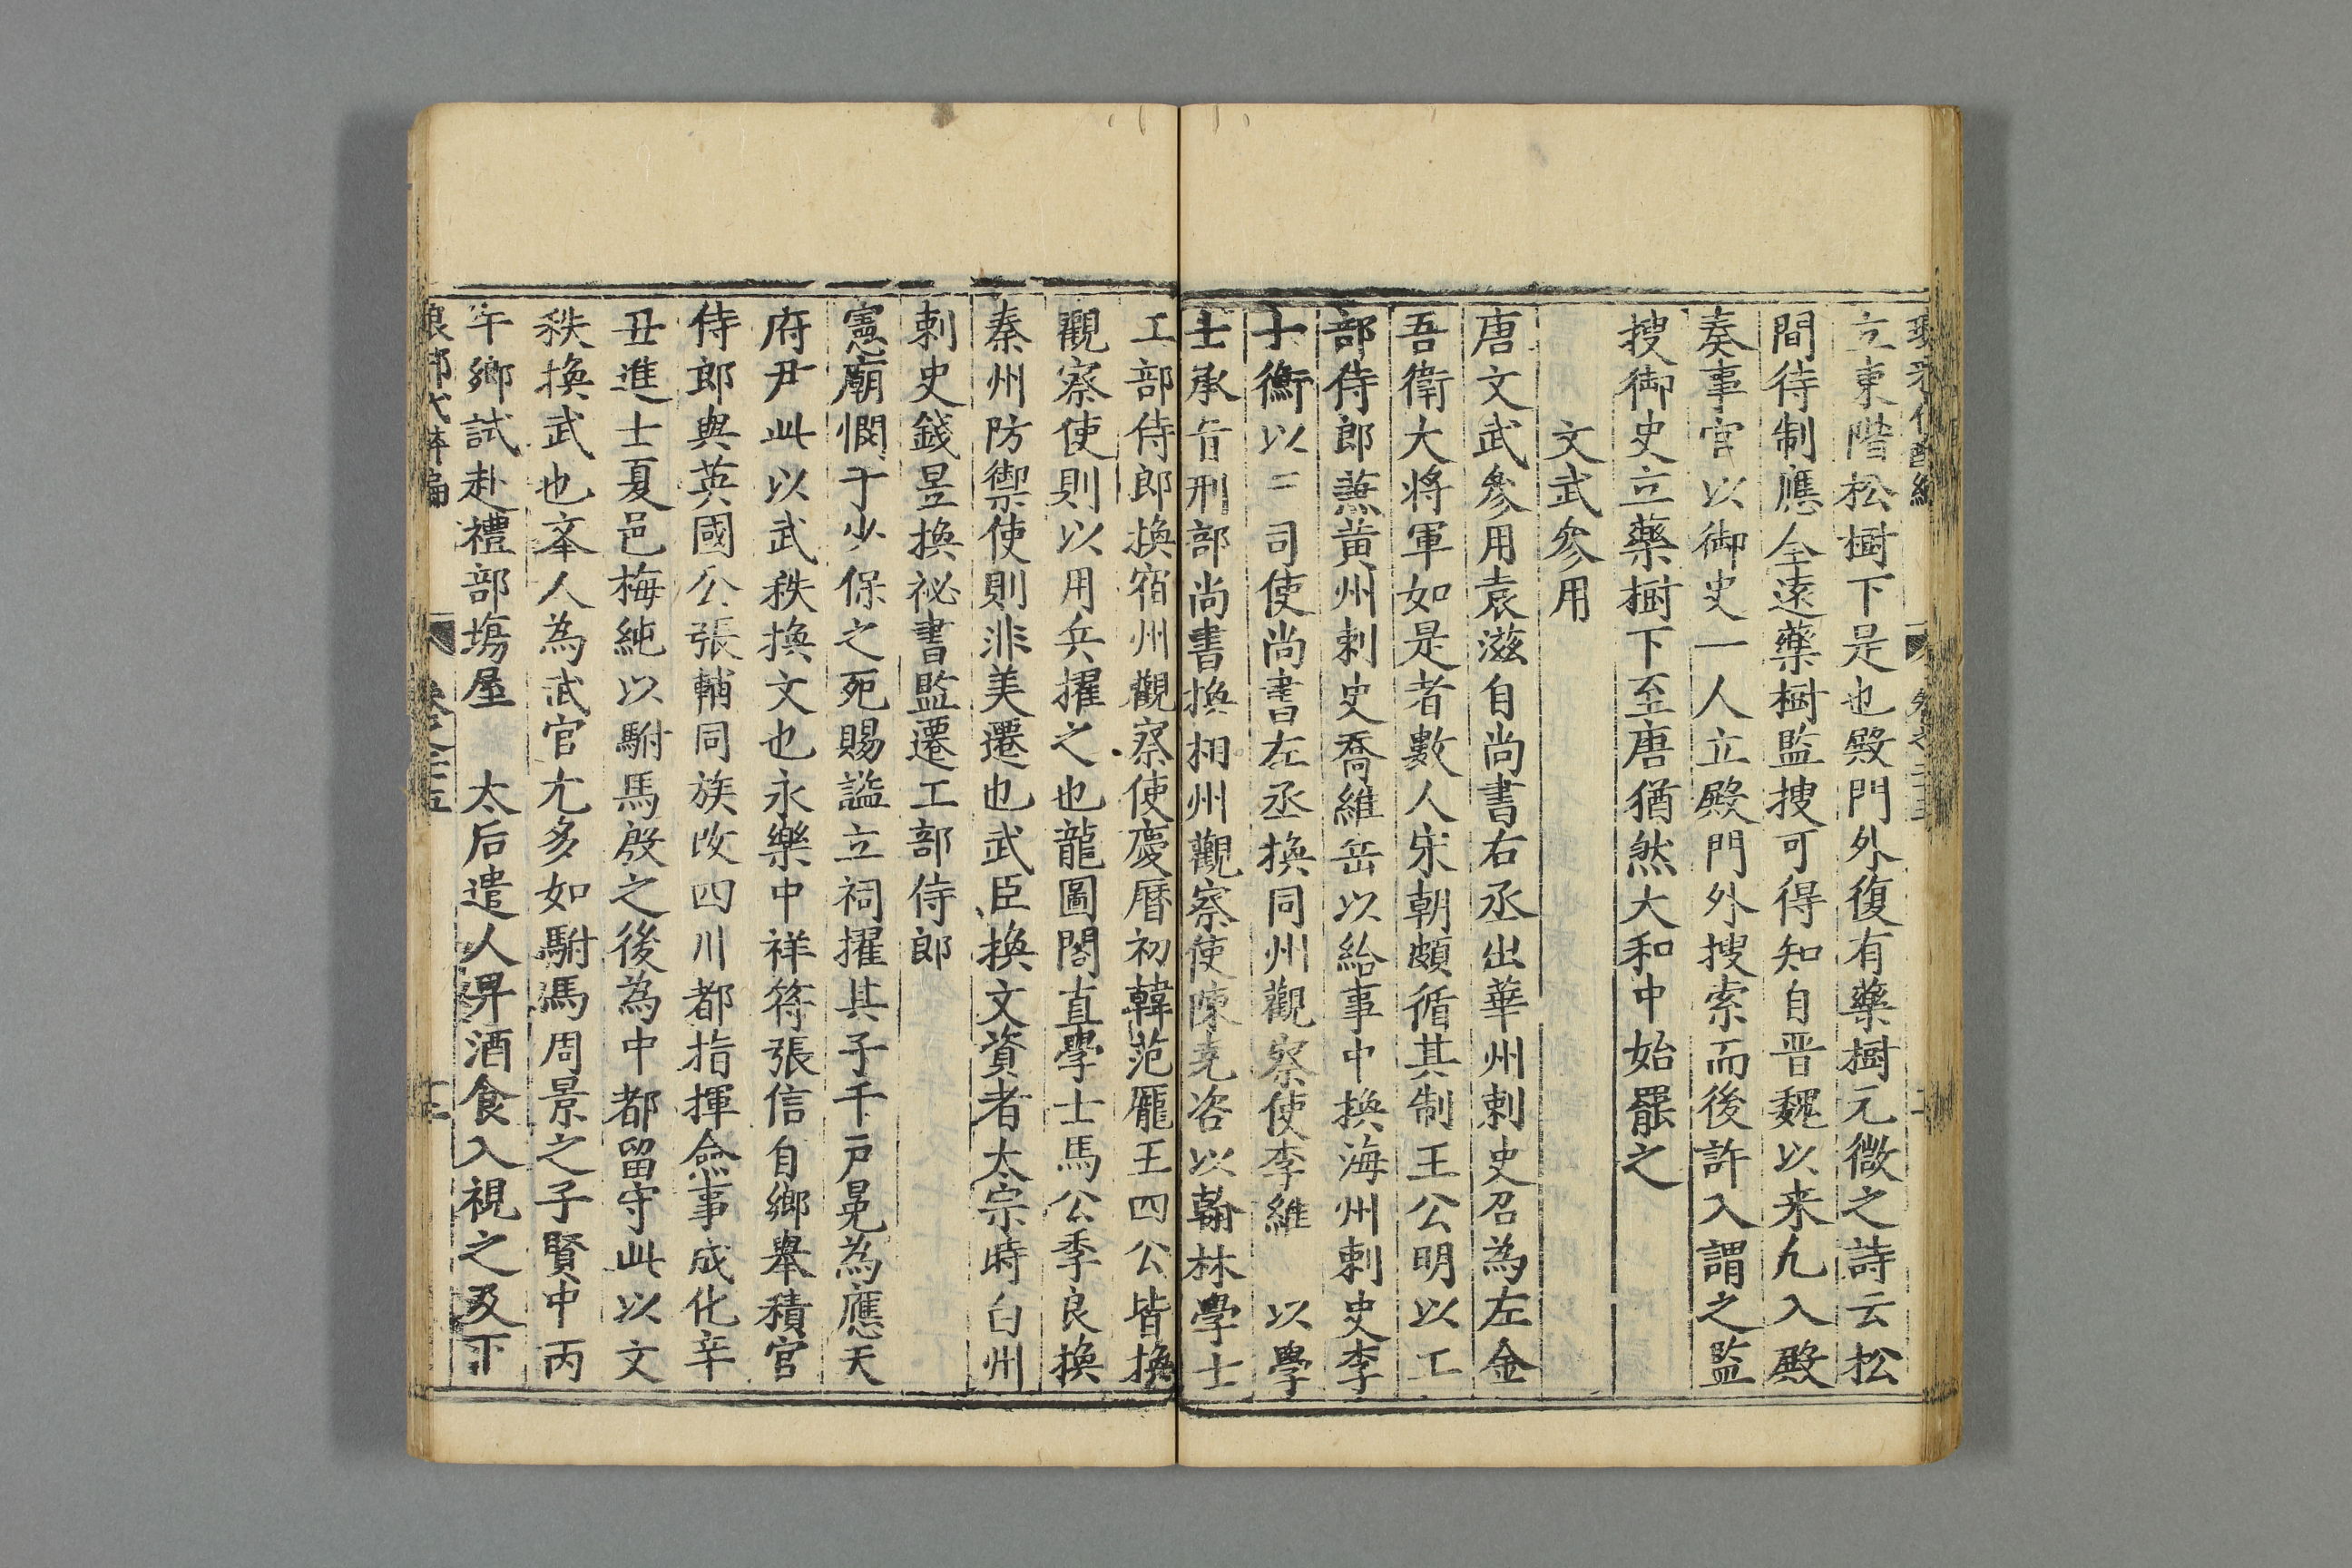 立東階松樹下是也殿門外復有藥樹元微之詩云松
間待制應全遠藥樹監搜可得知自晋魏以来凢入殿
奏事官以御史一人立殿門外搜索而後許入謂之監
搜御史立藥樹下至唐猶然大和中始罷之
文武參用
唐文武參用袁滋自尚書右丞出華州刺史召為左金
吾衛大將軍如是者數人宋朝頗循其制王公明以工
部侍郎兼黄州刺史喬維岳以給事中換海州刺史李
士衡以三司使尚書左丞換同州觀察使李維 以學
士承旨刑部尚書換相州觀察使陳尭咨以翰林學士
工部侍郎換宿州觀察使慶曆初韓范龐王四公皆換
觀察使則以用兵擢之也龍圖閣直學士馬公季良換
秦州防禦使則非美遷也武臣換文資者太宗時白州
刺史錢昱換祕書監遷工部侍郎
憲廟憫于少保之死賜謚立祠擢其子千戸冕為應天
府尹此以武秩換文也永樂中祥符張信自鄉舉積官
侍郎與英國公張輔同族改四川都指揮僉事成化辛
丑進士夏邑梅純以駙馬殷之後為中都留守此以文
秩換武也夲人為武官尤多如駙馬周景之子賢中丙
午鄉試赴禮部塲屋 太后遣人畀酒食入視之及下
卷之二十五